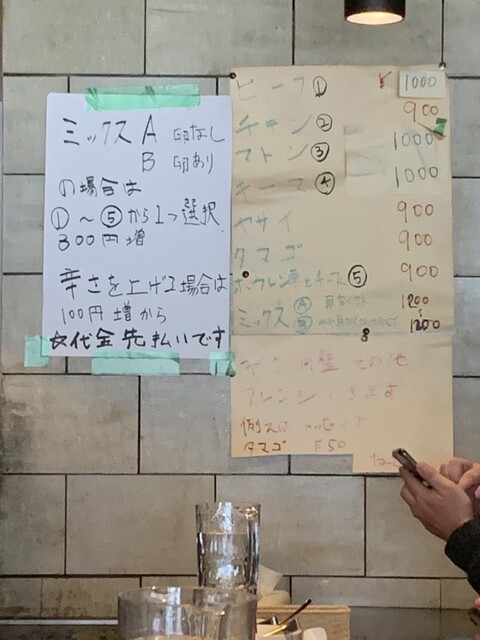 ミックス A 印なし
B 印あり
の場合は
①〜⑤から1つ選択
300円増
辛さを上げる場合は
100円増から
代金先払いです
ビーフ① ¥1000
チキン② 900
マトン③ 1000
キーマ④ 1000
ヤサイ 900
タマゴ 900
ホウレン草とチーズ⑤ 900
ミックス Ⓐ 1200
Ⓑ 1200
その他
アレンジ きます
例えば
タマゴ ¥50